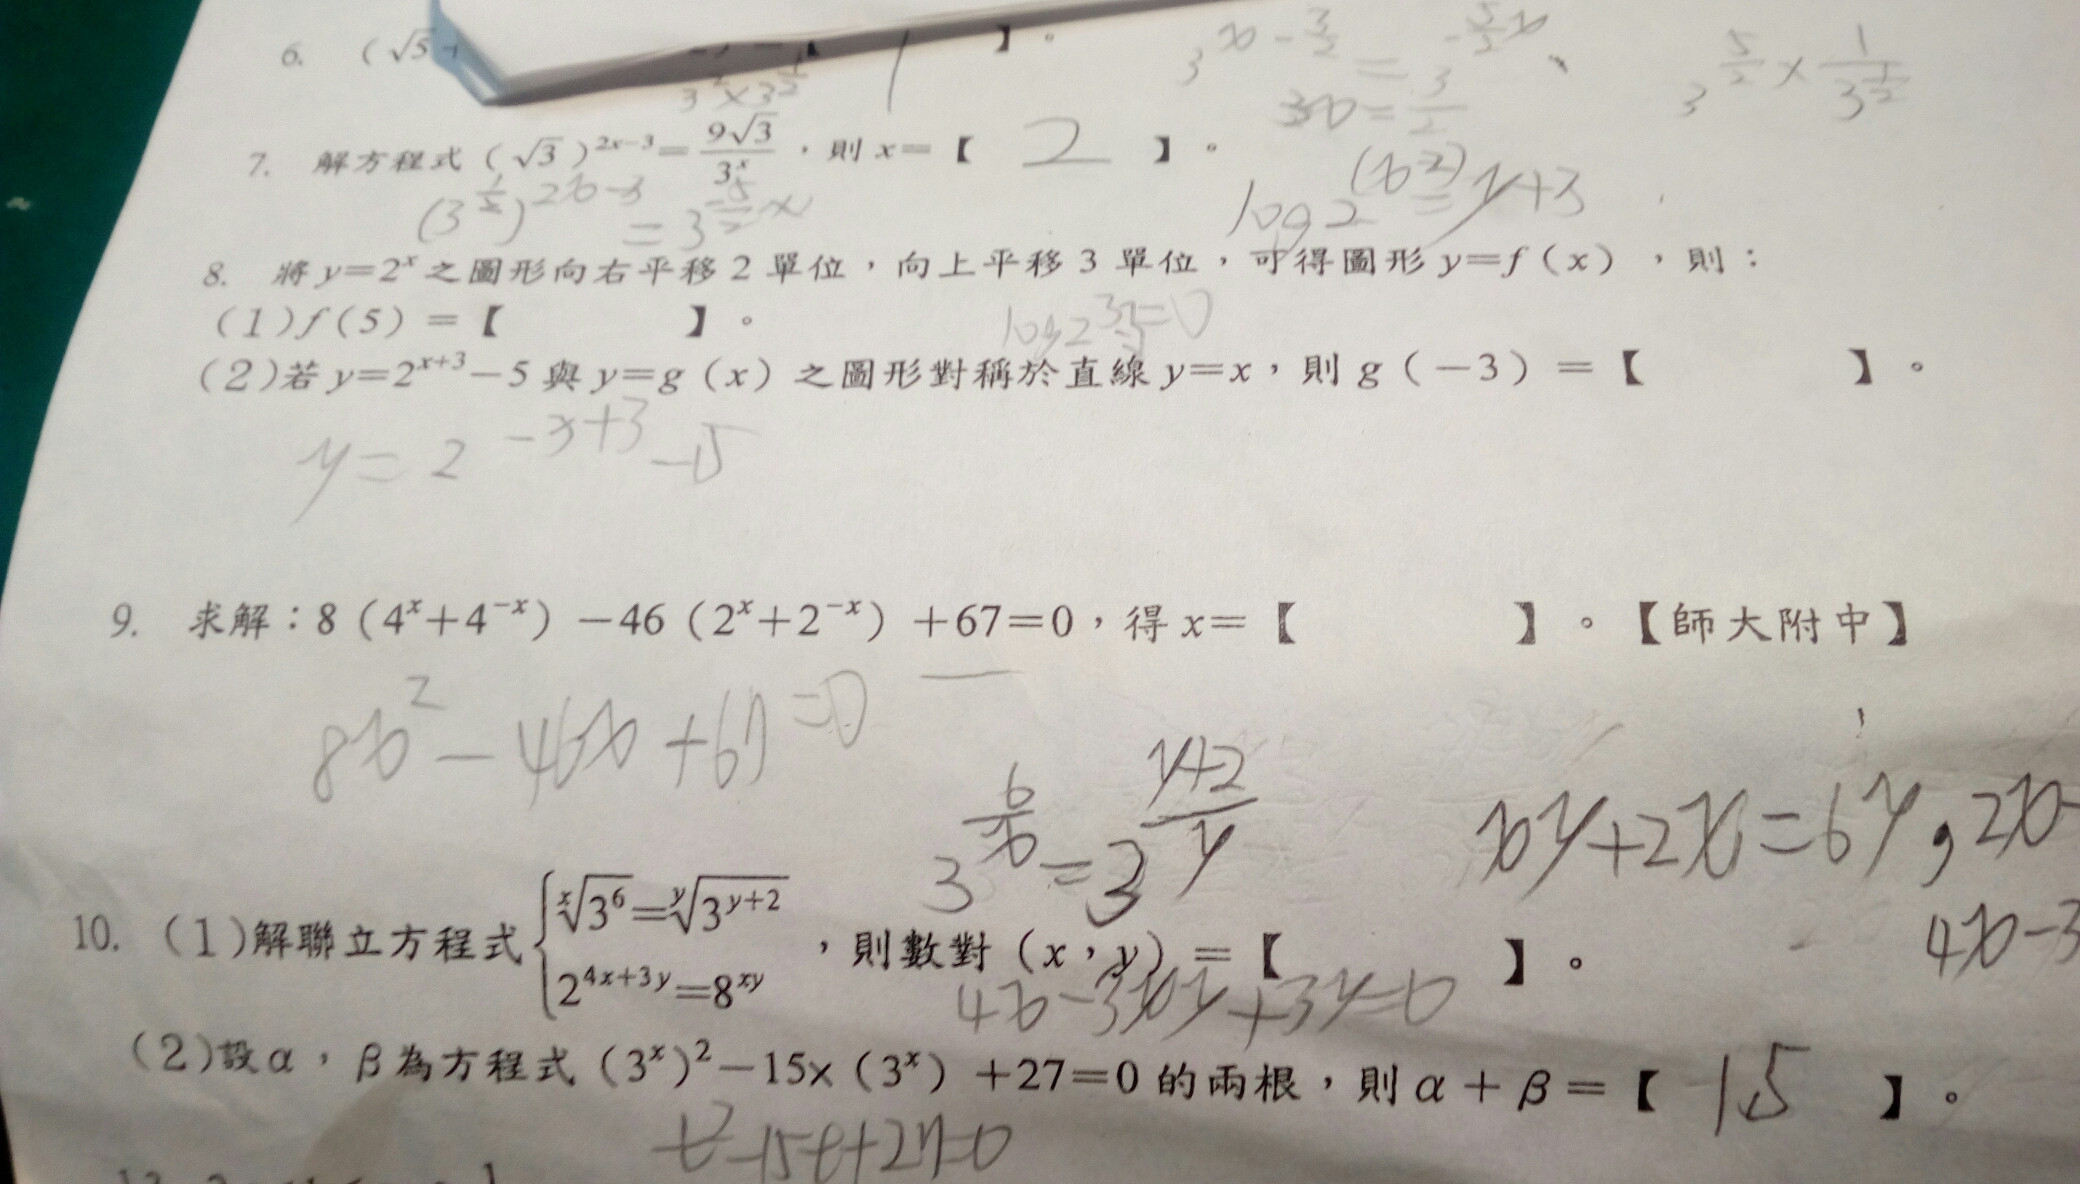 6. (√5
】。
3^{x-3/2} = 3^{5/2-x}
3x =
3^{5/2} × 1/3^{1/2}
7. 解方程式(√3)^{2x-3}=9√3/3^x,則 x=【 2 】。
(3^{1/2})^{2x-3} = 3^{5/2-x}
log2^{(x-2)}=y+3
8. 將 y=2^x 之圖形向右平移 2 單位,向上平移 3 單位,可得圖形 y=f(x),則:
(1)f(5)=【 】。
(2)若 y=2^{x+3}-5 與 y=g(x)之圖形對稱於直線 y=x,則 g(-3)=【 】。
y=2^{-x+3}-5
9. 求解:8(4^x+4^{-x})-46(2^x+2^{-x})+67=0,得 x=【 】。【師大附中】
8x^2-46x+67=0
3^{6/x}=3^{(y+2)/y}
xy+2x=6y,2x-
4x-3
10. (1)解聯立方程式{ \sqrt[x]{3^6}=\sqrt[y]{3^{y+2}}
2^{4x+3y}=8^{xy} ,則數對(x,y)=【 】。
4x-3xy+3y=0
(2)設α,β為方程式(3^x)^2-15×(3^x)+27=0 的兩根,則α+β=【 15 】。
t^2-15t+27=0